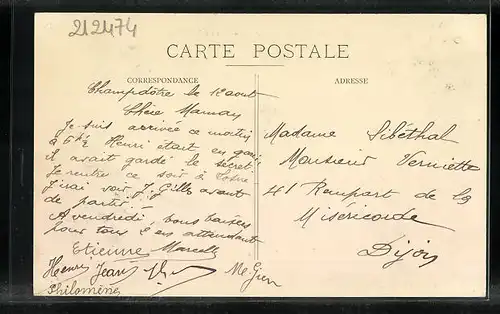 212474
CARTE POSTALE
CORRESPONDANCE
ADRESSE
Champdôtre le 12 août
Chère Maman
Je suis arrivée ce matin
à 6h½ Henri était en gare
il avait gardé le secret
Je rentre ce soir à
J'irai voir J. Gilles avant
de partir
A vendredi, bons baisers
pour tous & en attendant
Etienne Marcelle
Henri Jean
Philomène
Madame Sibéthal
Monsieur Verniette
41 Rempart de la
Miséricorde
Dijon